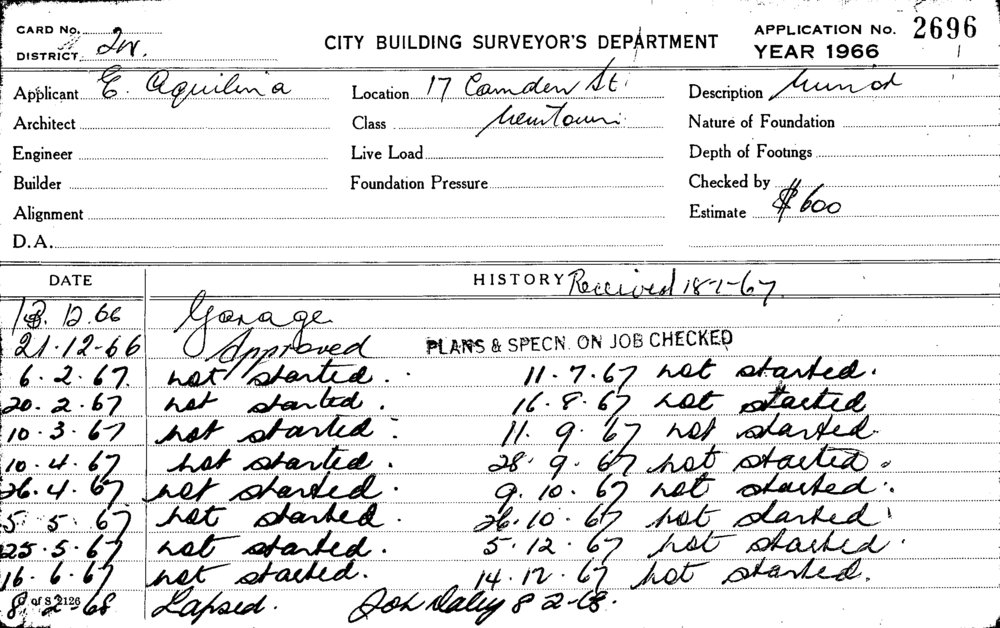 CARD No. CITY BUILDING SURVEYOR'S DEPARTMENT APPLICATION No. 2696
DISTRICT YEAR 1966
Applicant E. Aquilina Location 17 Camden St. Description Minor
Architect Class Newtown Nature of Foundation
Engineer Live Load Depth of Footings
Builder Foundation Pressure Checked by
Alignment Estimate $600
D.A.
DATE HISTORY Received 18-1-67
12.66 Garage
21.12-66 Approved PLANS & SPECN. ON JOB CHECKED
6.2.67. not started. 11.7.67 not started.
20.2.67 not started. 16.8.67 not started
10.3.67 not started. 11.9.67 not started.
10.4.67 not started. 28.9.67 not started.
26.4.67 not started. 9.10.67 not started.
5.5.67 not started. 26.10.67 not started.
25.5.67 not started. 5.12.67 not started.
16.6.67 not started. 14.12.67 not started.
8.2.68 Lapsed. Daley 8 2-68.
of S 2126